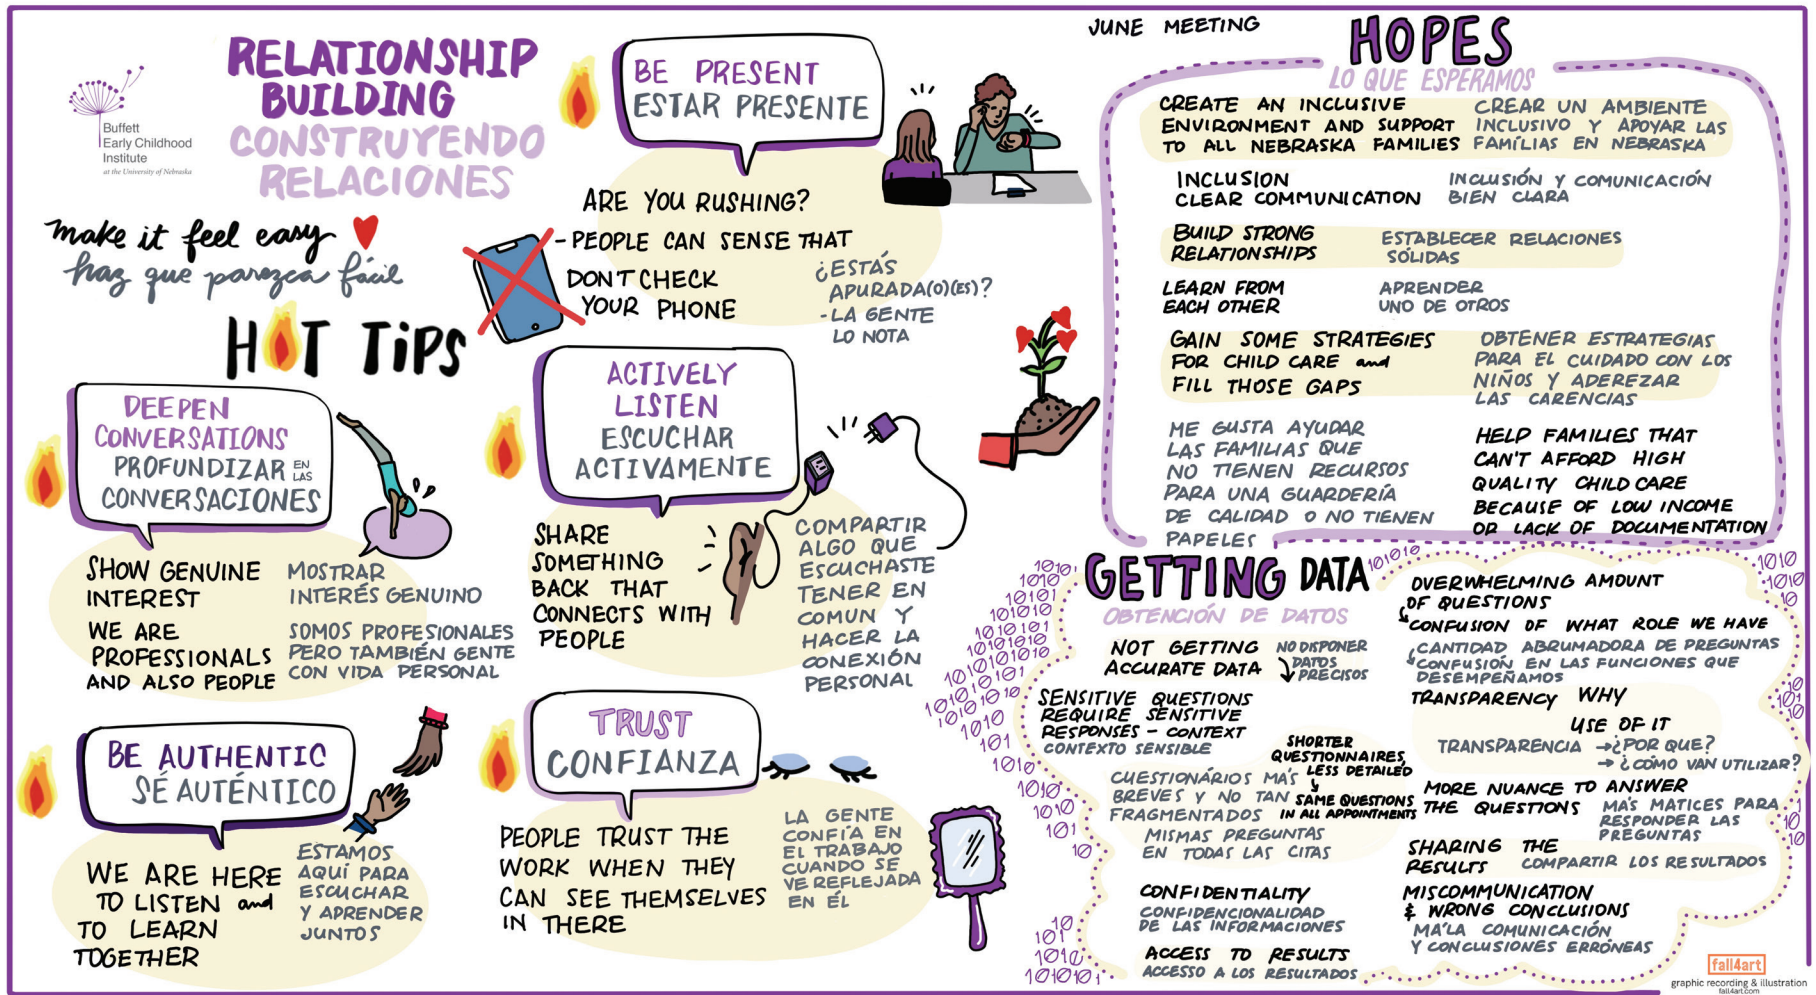 Buffett
Early Childhood
Institute
at the University of Nebraska
RELATIONSHIP
BUILDING
CONSTRUYENDO
RELACIONES
make it feel easy
haz que parezca fácil
HOT TiPS
DEEPEN
CONVERSATIONS
PROFUNDIZAR EN LAS
CONVERSACIONES
SHOW GENUINE
INTEREST
WE ARE
PROFESSIONALS
AND ALSO PEOPLE
MOSTRAR
INTERÉS GENUINO
SOMOS PROFESIONALES
PERO TAMBIÉN GENTE
CON VIDA PERSONAL
BE AUTHENTIC
SÉ AUTÉNTICO
WE ARE HERE
TO LISTEN and
TO LEARN
TOGETHER
ESTAMOS
AQUÍ PARA
ESCUCHAR
Y APRENDER
JUNTOS
BE PRESENT
ESTAR PRESENTE
ARE YOU RUSHING?
- PEOPLE CAN SENSE THAT
DON'T CHECK
YOUR PHONE
¿ESTÁS
APURADA(O)(ES)?
- LA GENTE
LO NOTA
ACTIVELY
LISTEN
ESCUCHAR
ACTIVAMENTE
SHARE
SOMETHING
BACK THAT
CONNECTS WITH
PEOPLE
COMPARTIR
ALGO QUE
ESCUCHASTE
TENER EN
COMUN Y
HACER LA
CONEXIÓN
PERSONAL
TRUST
CONFIANZA
PEOPLE TRUST THE
WORK WHEN THEY
CAN SEE THEMSELVES
IN THERE
LA GENTE
CONFÍA EN
EL TRABAJO
CUANDO SE
VE REFLEJADA
EN ÉL
JUNE MEETING
HOPES
LO QUE ESPERAMOS
CREATE AN INCLUSIVE
ENVIRONMENT AND SUPPORT
TO ALL NEBRASKA FAMILIES
CREAR UN AMBIENTE
INCLUSIVO Y APOYAR LAS
FAMÍLIAS EN NEBRASKA
INCLUSION
CLEAR COMMUNICATION
INCLUSIÓN Y COMUNICACIÓN
BIEN CLARA
BUILD STRONG
RELATIONSHIPS
ESTABLECER RELACIONES
SÓLIDAS
LEARN FROM
EACH OTHER
APRENDER
UNO DE OTROS
GAIN SOME STRATEGIES
FOR CHILD CARE and
FILL THOSE GAPS
OBTENER ESTRATEGIAS
PARA EL CUIDADO CON LOS
NIÑOS Y ADEREZAR
LAS CARENCIAS
ME GUSTA AYUDAR
LAS FAMILIAS QUE
NO TIENEN RECURSOS
PARA UNA GUARDERÍA
DE CALIDAD O NO TIENEN
PAPELES
HELP FAMILIES THAT
CAN'T AFFORD HIGH
QUALITY CHILD CARE
BECAUSE OF LOW INCOME
OR LACK OF DOCUMENTATION
GETTING DATA
OBTENCIÓN DE DATOS
NOT GETTING
ACCURATE DATA
NO DISPONER
DATOS
PRECISOS
SENSITIVE QUESTIONS
REQUIRE SENSITIVE
RESPONSES - CONTEXT
CONTEXTO SENSIBLE
SHORTER
QUESTIONNAIRES,
LESS DETAILED
SAME QUESTIONS
IN ALL APPOINTMENTS
CUESTIONÁRIOS MÁS
BREVES Y NO TAN
FRAGMENTADOS
MISMAS PREGUNTAS
EN TODAS LAS CITAS
CONFIDENTIALITY
CONFIDENCIONALIDAD
DE LAS INFORMACIONES
ACCESS TO RESULTS
ACCESSO A LOS RESULTADOS
OVERWHELMING AMOUNT
OF QUESTIONS
CONFUSION OF WHAT ROLE WE HAVE
CANTIDAD ABRUMADORA DE PREGUNTAS
CONFUSIÓN EN LAS FUNCIONES QUE
DESEMPEÑAMOS
TRANSPARENCY WHY
USE OF IT
TRANSPARENCIA → ¿POR QUE?
→ ¿CÓMO VAN UTILIZAR?
MORE NUANCE TO ANSWER
THE QUESTIONS
MÁS MATICES PARA
RESPONDER LAS
PREGUNTAS
SHARING THE
RESULTS
COMPARTIR LOS RESULTADOS
MISCOMMUNICATION
& WRONG CONCLUSIONS
MÁLA COMUNICACIÓN
Y CONCLUSIONES ERRÓNEAS
fall4art
graphic recording & illustration
fall4art.com